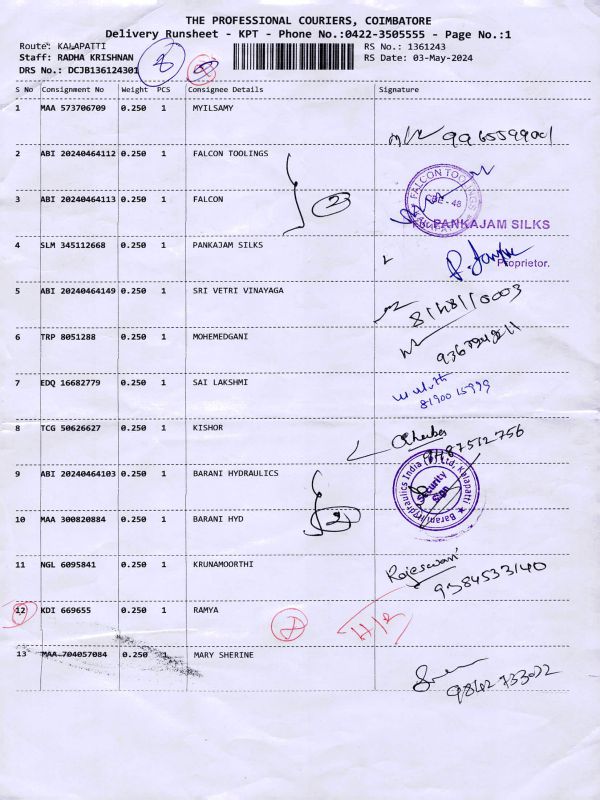 THE PROFESSIONAL COURIERS, COIMBATORE
Delivery Runsheet - KPT - Phone No.:0422-3505555 - Page No.:1
Route: KALAPATTI RS No.: 1361243
Staff: RADHA KRISHNAN 8 RS Date: 03-May-2024
DRS No.: DCJB136124301
S No Consignment No Weight PCS Consignee Details Signature
1 MAA 573706709 0.250 1 MYILSAMY
2 ABI 20240464112 0.250 1 FALCON TOOLINGS
FALCON TOOLINGS
CBE - 48
3 ABI 20240464113 0.250 1 FALCON 2
PANKAJAM SILKS
4 SLM 345112668 0.250 1 PANKAJAM SILKS
Proprietor.
5 ABI 20240464149 0.250 1 SRI VETRI VINAYAGA
6 TRP 8051288 0.250 1 MOHEMEDGANI
7 EDQ 16682779 0.250 1 SAI LAKSHMI
81900 15999
8 TCG 50626627 0.250 1 KISHOR
9 ABI 20240464103 0.250 1 BARANI HYDRAULICS
Barani Hydraulics India Pvt Ltd, Kalapatti
Security
Sign
10 MAA 300820884 0.250 1 BARANI HYD 2
11 NGL 6095841 0.250 1 KRUNAMOORTHI
Rajeswari
9384533140
12 KDI 669655 0.250 1 RAMYA
13 MAA 704057084 0.250 1 MARY SHERINE
9842 733022